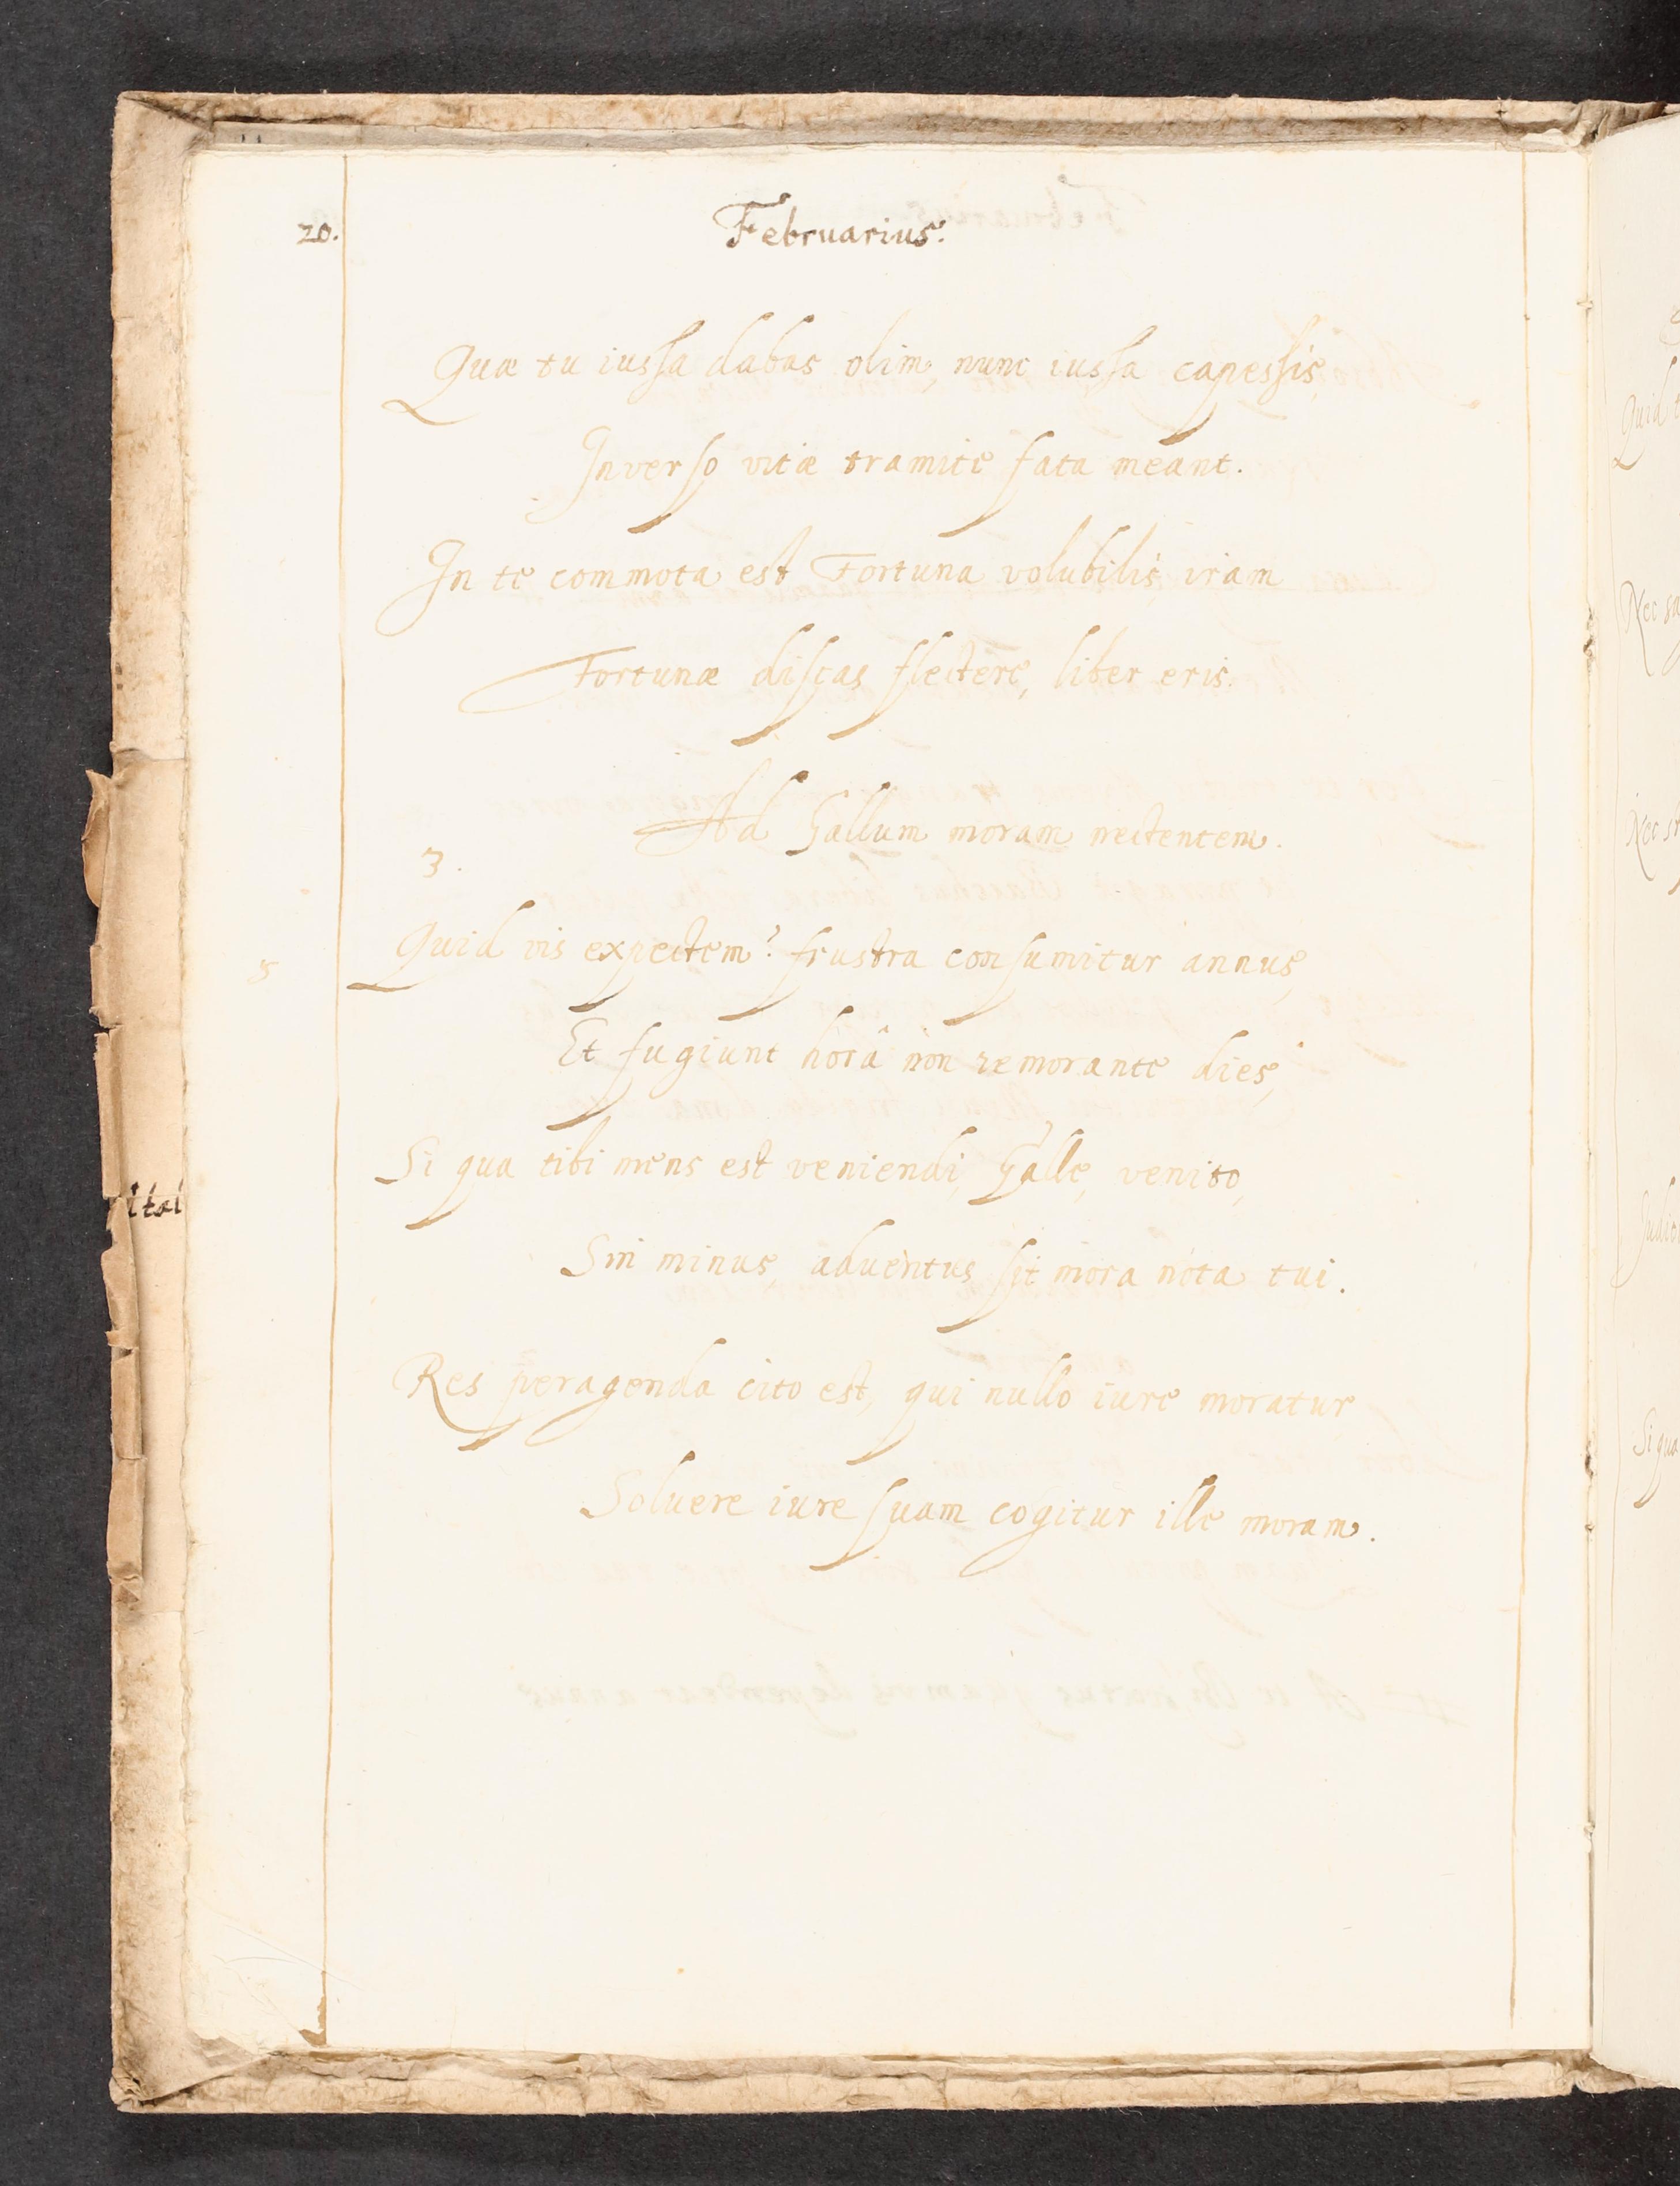 20.
Februarius.
Quæ tu iussa dabas olim, nunc iussa capessis,
Inverso vitæ tramite fata meant.
In te commota est Fortuna volubilis, iram
Fortunæ discas flectere, liber eris.
Ad Gallum moram nectentem.
3.
Quid vis expectem? frustra consumitur annus,
8
Et fugiunt horâ non remorante dies,
Si qua tibi mens est veniendi, Galle, venito,
Sin minus, aduentus sit mora nota tui.
Res peragenda cito est, qui nullo iure moratur
Soluere iure suam cogitur ille moram.
ital
Quid
Nec
Nec
Si qua